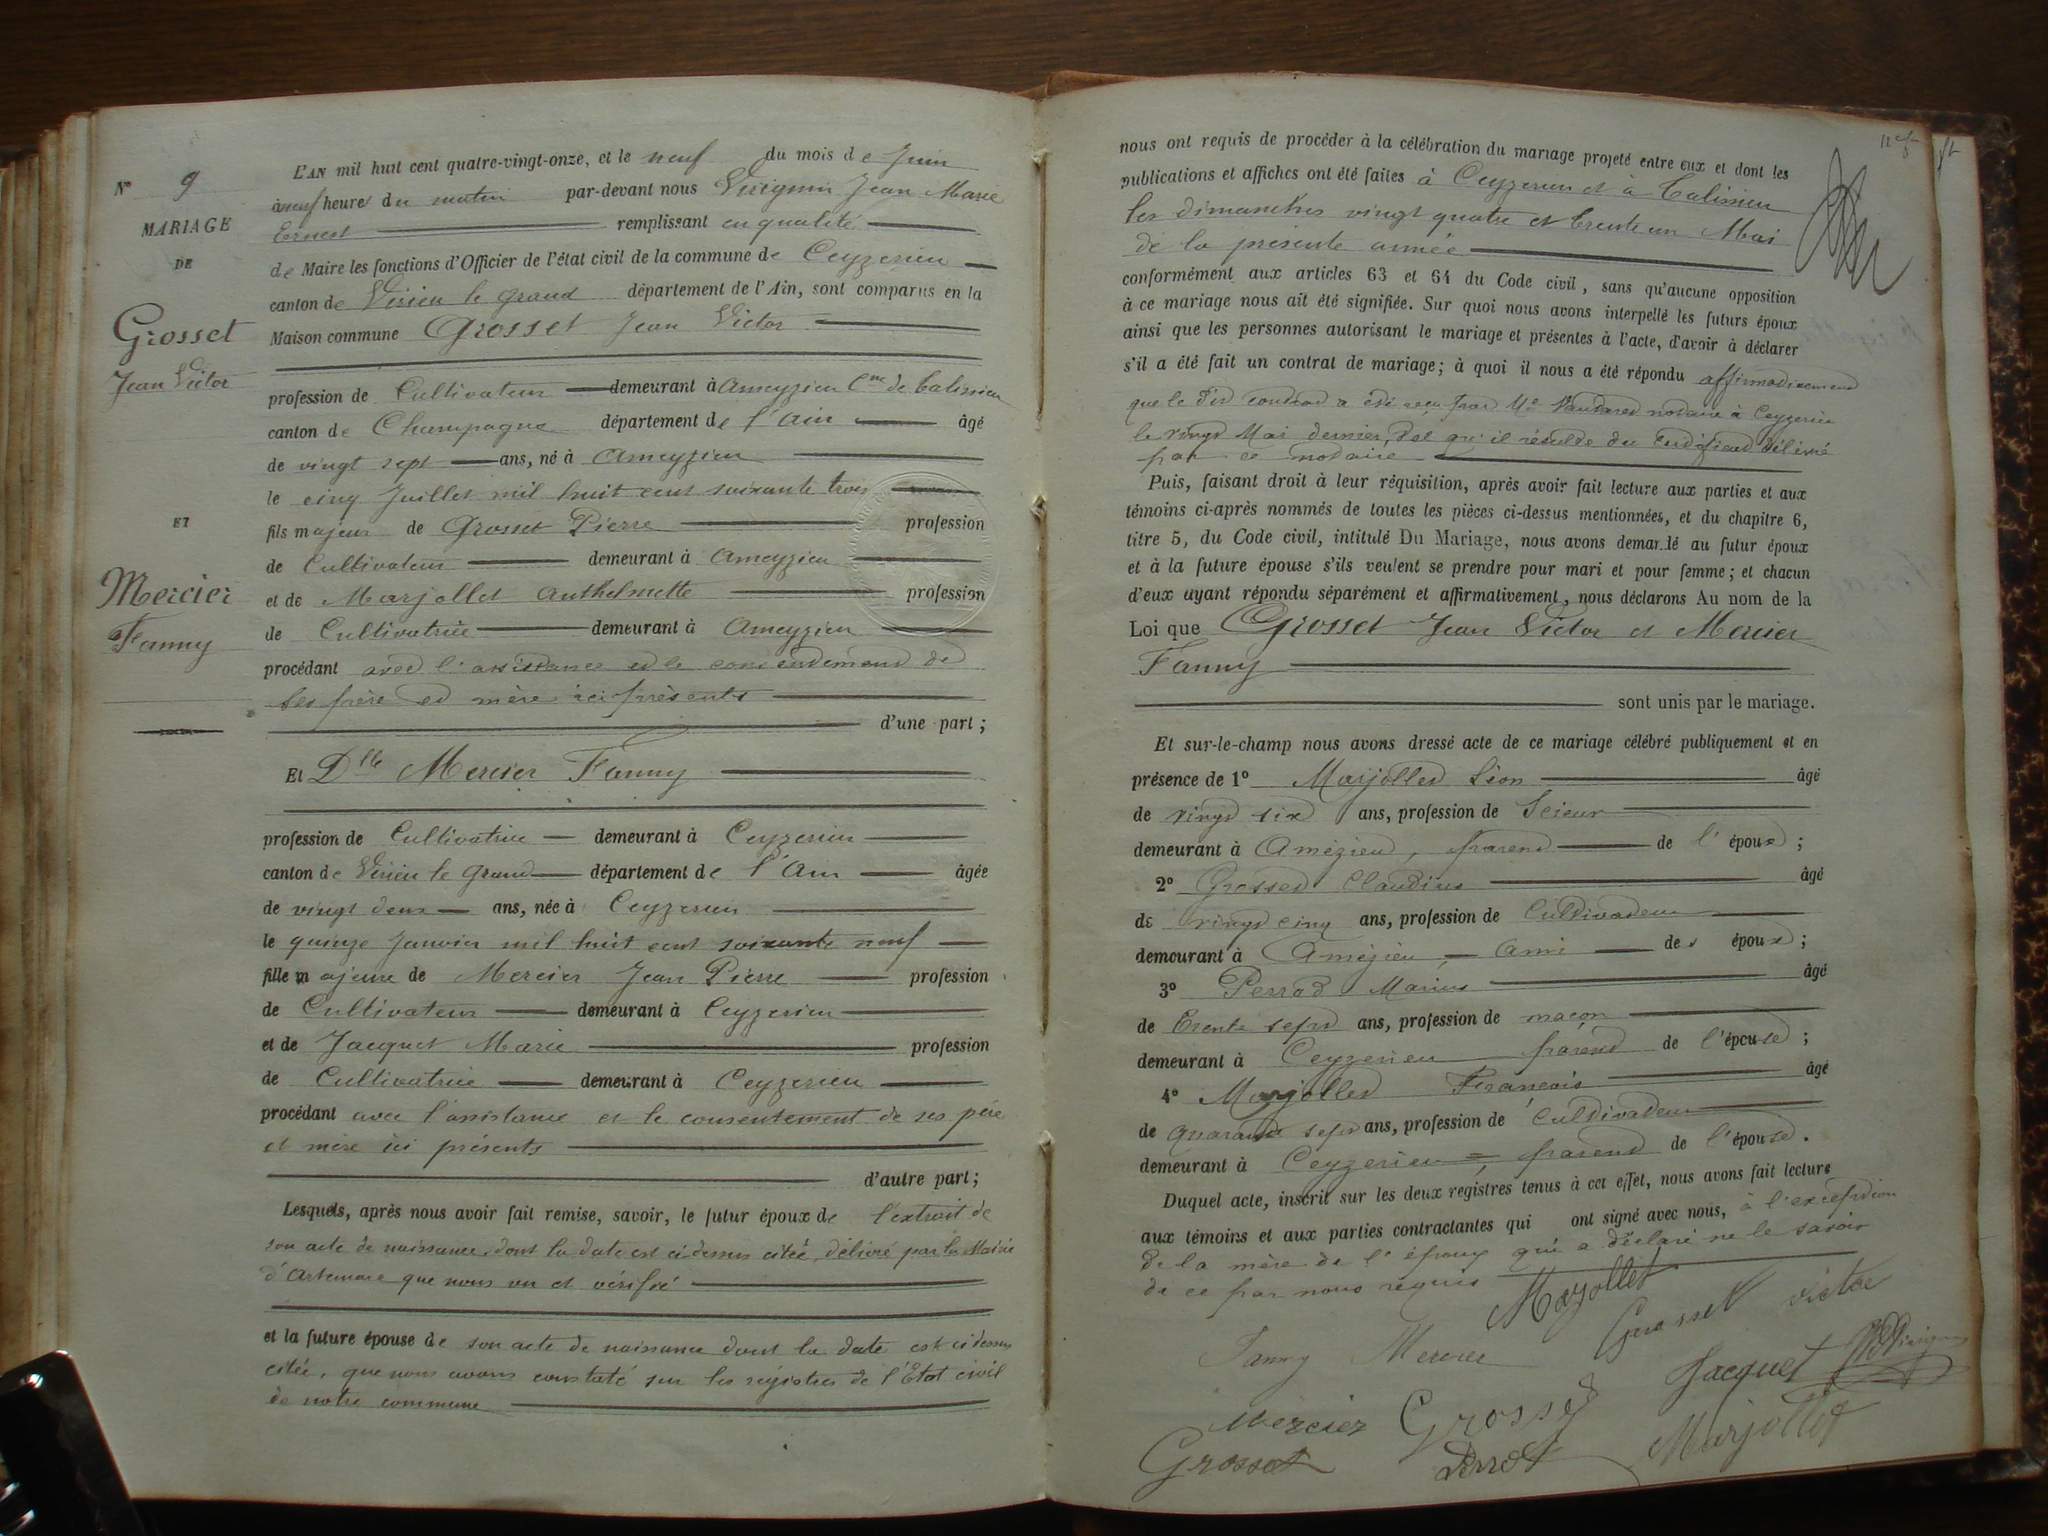 N° 9
MARIAGE
DE
Grosset
Jean Victor
ET
Mercier
Fanny
L'AN mil huit cent quatre-vingt-onze, et le neuf du mois de Juin
à neuf heures du matin par-devant nous Jean Marie
Ernest remplissant en qualité
de Maire les fonctions d'Officier de l'état civil de la commune de Ceyzerieu
canton de Virieu le grand département de l'Ain, sont comparus en la
Maison commune Grosset Jean Victor
profession de Cultivateur demeurant à Ameyzieu Cne de Talissieu
canton de Champagne département de l'Ain âgé
de vingt sept ans, né à Ameyzieu
le cinq Juillet mil huit cent soixante trois
fils majeur de Grosset Pierre profession
de Cultivateur demeurant à Ameyzieu
et de Marjollet Anthelmette profession
de Cultivatrice demeurant à Ameyzieu
procédant avec l'assistance et le consentement de
ses père et mère ici présents
d'une part ;
Et Dlle Mercier Fanny
profession de Cultivatrice demeurant à Ceyzerieu
canton de Virieu le Grand département de l'Ain âgée
de vingt deux ans, née à Ceyzerieu
le quinze Janvier mil huit cent soixante neuf
fille majeure de Mercier Jean Pierre profession
de Cultivateur demeurant à Ceyzerieu
et de Jacquet Marie profession
de Cultivatrice demeurant à Ceyzerieu
procédant avec l'assistance et le consentement de ses père
et mère ici présents
d'autre part ;
Lesquels, après nous avoir fait remise, savoir, le futur époux de l'extrait de
son acte de naissance, dont la date est ci dessus citée, délivré par la Mairie
d'Artemare que nous vu et vérifié
et la future épouse de son acte de naissance dont la date est ci dessus
citée, que nous avons constaté sur les régistres de l'Etat civil
de notre commune
nous ont requis de procéder à la célébration du mariage projeté entre eux et dont les
publications et affiches ont été faites à Ceyzerieu et à Talissieu
les dimanches vingt quatre et trente un Mai
de la présente année
conformément aux articles 63 et 64 du Code civil, sans qu'aucune opposition
à ce mariage nous ait été signifiée. Sur quoi nous avons interpellé les futurs époux
ainsi que les personnes autorisant le mariage et présentes à l'acte, d'avoir à déclarer
s'il a été fait un contrat de mariage ; à quoi il nous a été répondu affirmativement
que le dit contrat a été reçu par Me notaire à Ceyzerieu
le vingt Mai dernier, tel qu'il résulte du certificat délivré
par ce notaire
Puis, faisant droit à leur réquisition, après avoir fait lecture aux parties et aux
témoins ci-après nommés de toutes les pièces ci-dessus mentionnées, et du chapitre 6,
titre 5, du Code civil, intitulé Du Mariage, nous avons demandé au futur époux
et à la future épouse s'ils veulent se prendre pour mari et pour femme ; et chacun
d'eux ayant répondu séparément et affirmativement, nous déclarons Au nom de la
Loi que Grosset Jean Victor et Mercier
Fanny
sont unis par le mariage.
Et sur-le-champ nous avons dressé acte de ce mariage célébré publiquement et en
présence de 1° Marjollet Léon âgé
de vingt six ans, profession de Scieur
demeurant à Amézieu, parent de l'époux ;
2° Grosset Claudius âgé
de vingt cinq ans, profession de Cultivateur
demeurant à Amézieu, ami des époux ;
3° Perrod Marius âgé
de trente sept ans, profession de maçon
demeurant à Ceyzerieu parent de l'épouse ;
4° Marjollet Francois âgé
de quarante sept ans, profession de Cultivateur
demeurant à Ceyzerieu parent de l'épouse.
Duquel acte, inscrit sur les deux régistres tenus à cet effet, nous avons fait lecture
aux témoins et aux parties contractantes qui ont signé avec nous, à l'exception
de la mère de l'époux qui a déclaré ne le savoir
de ce par nous requis
Marjollet
Grosset victor
Fanny Mercier
Jacquet
Mercier Grosset
Marjollet
Grosset Perrod